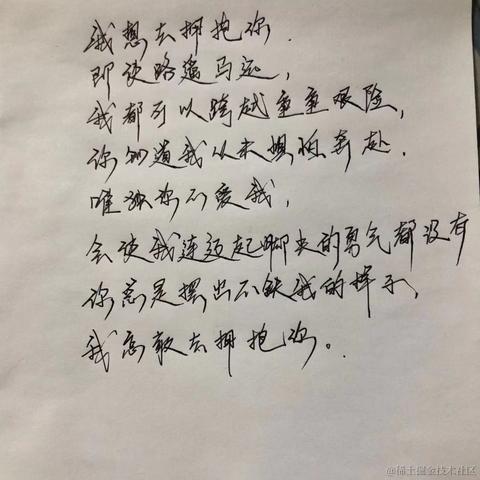 我想去拥抱你.
即使路遥马远,
我都可以跨越重重艰险,
你知道我从未惧怕奔赴.
唯独你不爱我,
会使我连迈起脚夹的勇气都没有
你总是摆出不缺我的样子,
我怎敢去拥抱你。
@稀土掘金技术社区